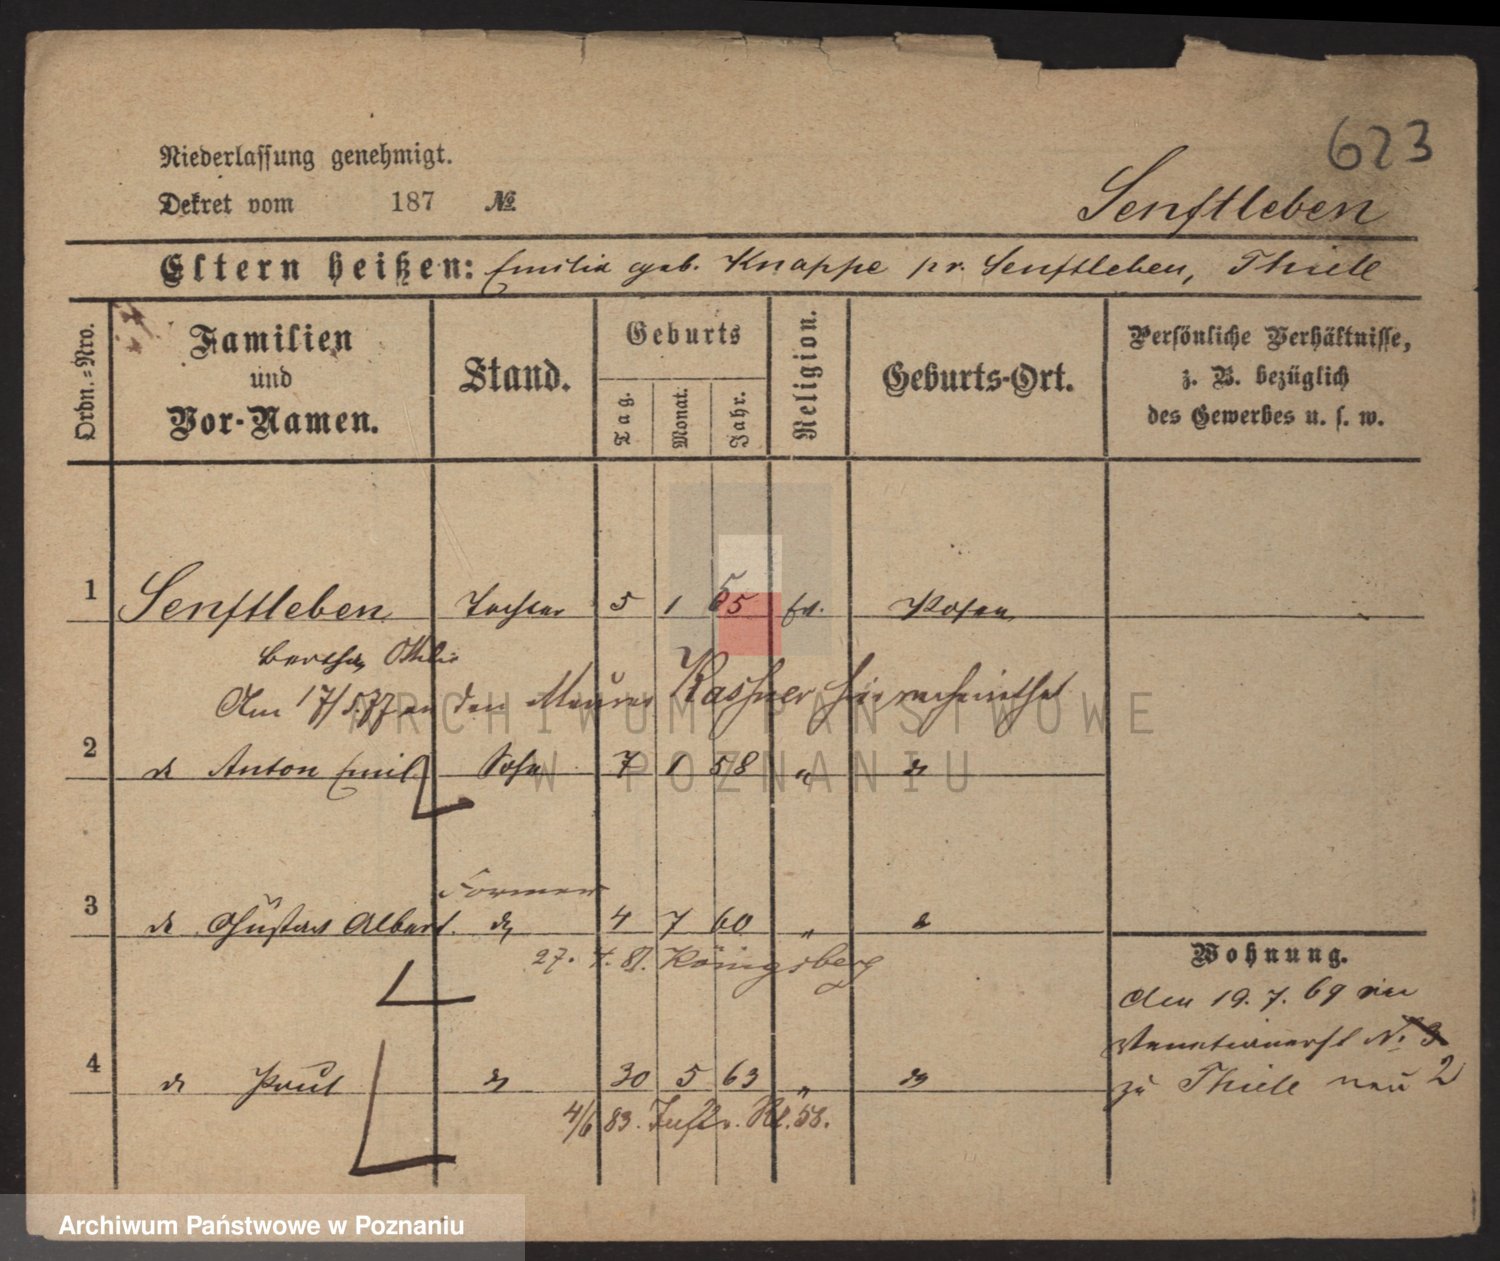 623
Niederlassung genehmigt.
Dekret vom 187 №
Senftleben
Eltern heißen: Emilie geb. Knappe pr. Senftleben, Thiele
Ordn.-Nro.
Familien und Vor-Namen.
Stand.
Geburts
Tag. Monat. Jahr.
Religion.
Geburts-Ort.
Persönliche Verhältnisse, z. B. bezüglich des Gewerbes u. s. w.
1 Senftleben Tochter 5 1 55 ev. Posen
Bertha Ottilie
Am 17/5.77 an den Maurer Kashner hier verheirathet
2 do Anton Emil Sohn 7 1 58 „ do
Former
3 do Gustav Albert. do 4 7 60 „ do
27. 4. 81. Königsberg
4 do Paul do 30 5 63 „ do
4/6 83. Inftr. Rt. 58.
Wohnung.
den 19. 7. 69 von
Venetianerst No 3
zu Thiele neu 2
ARCHIWUM PAŃSTWOWE
W POZNANIU
Archiwum Państwowe w Poznaniu